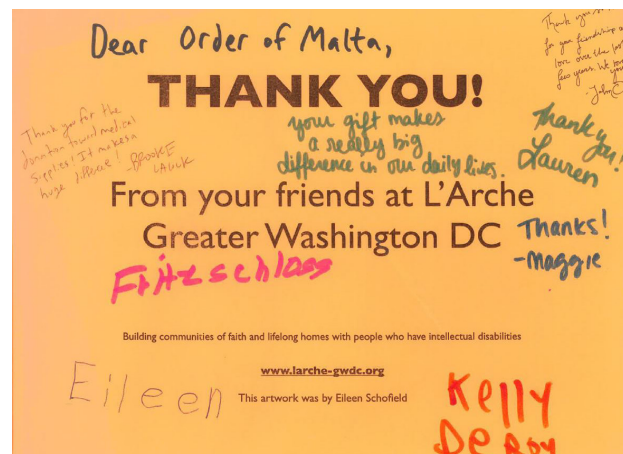 Dear Order of Malta,
Thank you
for your friendship
love over the
years. We
-John
THANK YOU!
Thank you for the
donation toward medical
supplies! It makes a
huge difference! - BROOKE
your gift makes
a really big
difference in our daily lives.
Thank you!
Lauren
From your friends at L'Arche
Greater Washington DC
Thanks!
-Maggie
Fritz schloss
Building communities of faith and lifelong homes with people who have intellectual disabilities
www.larche-gwdc.org
Eileen
This artwork was by Eileen Schofield
Kelly